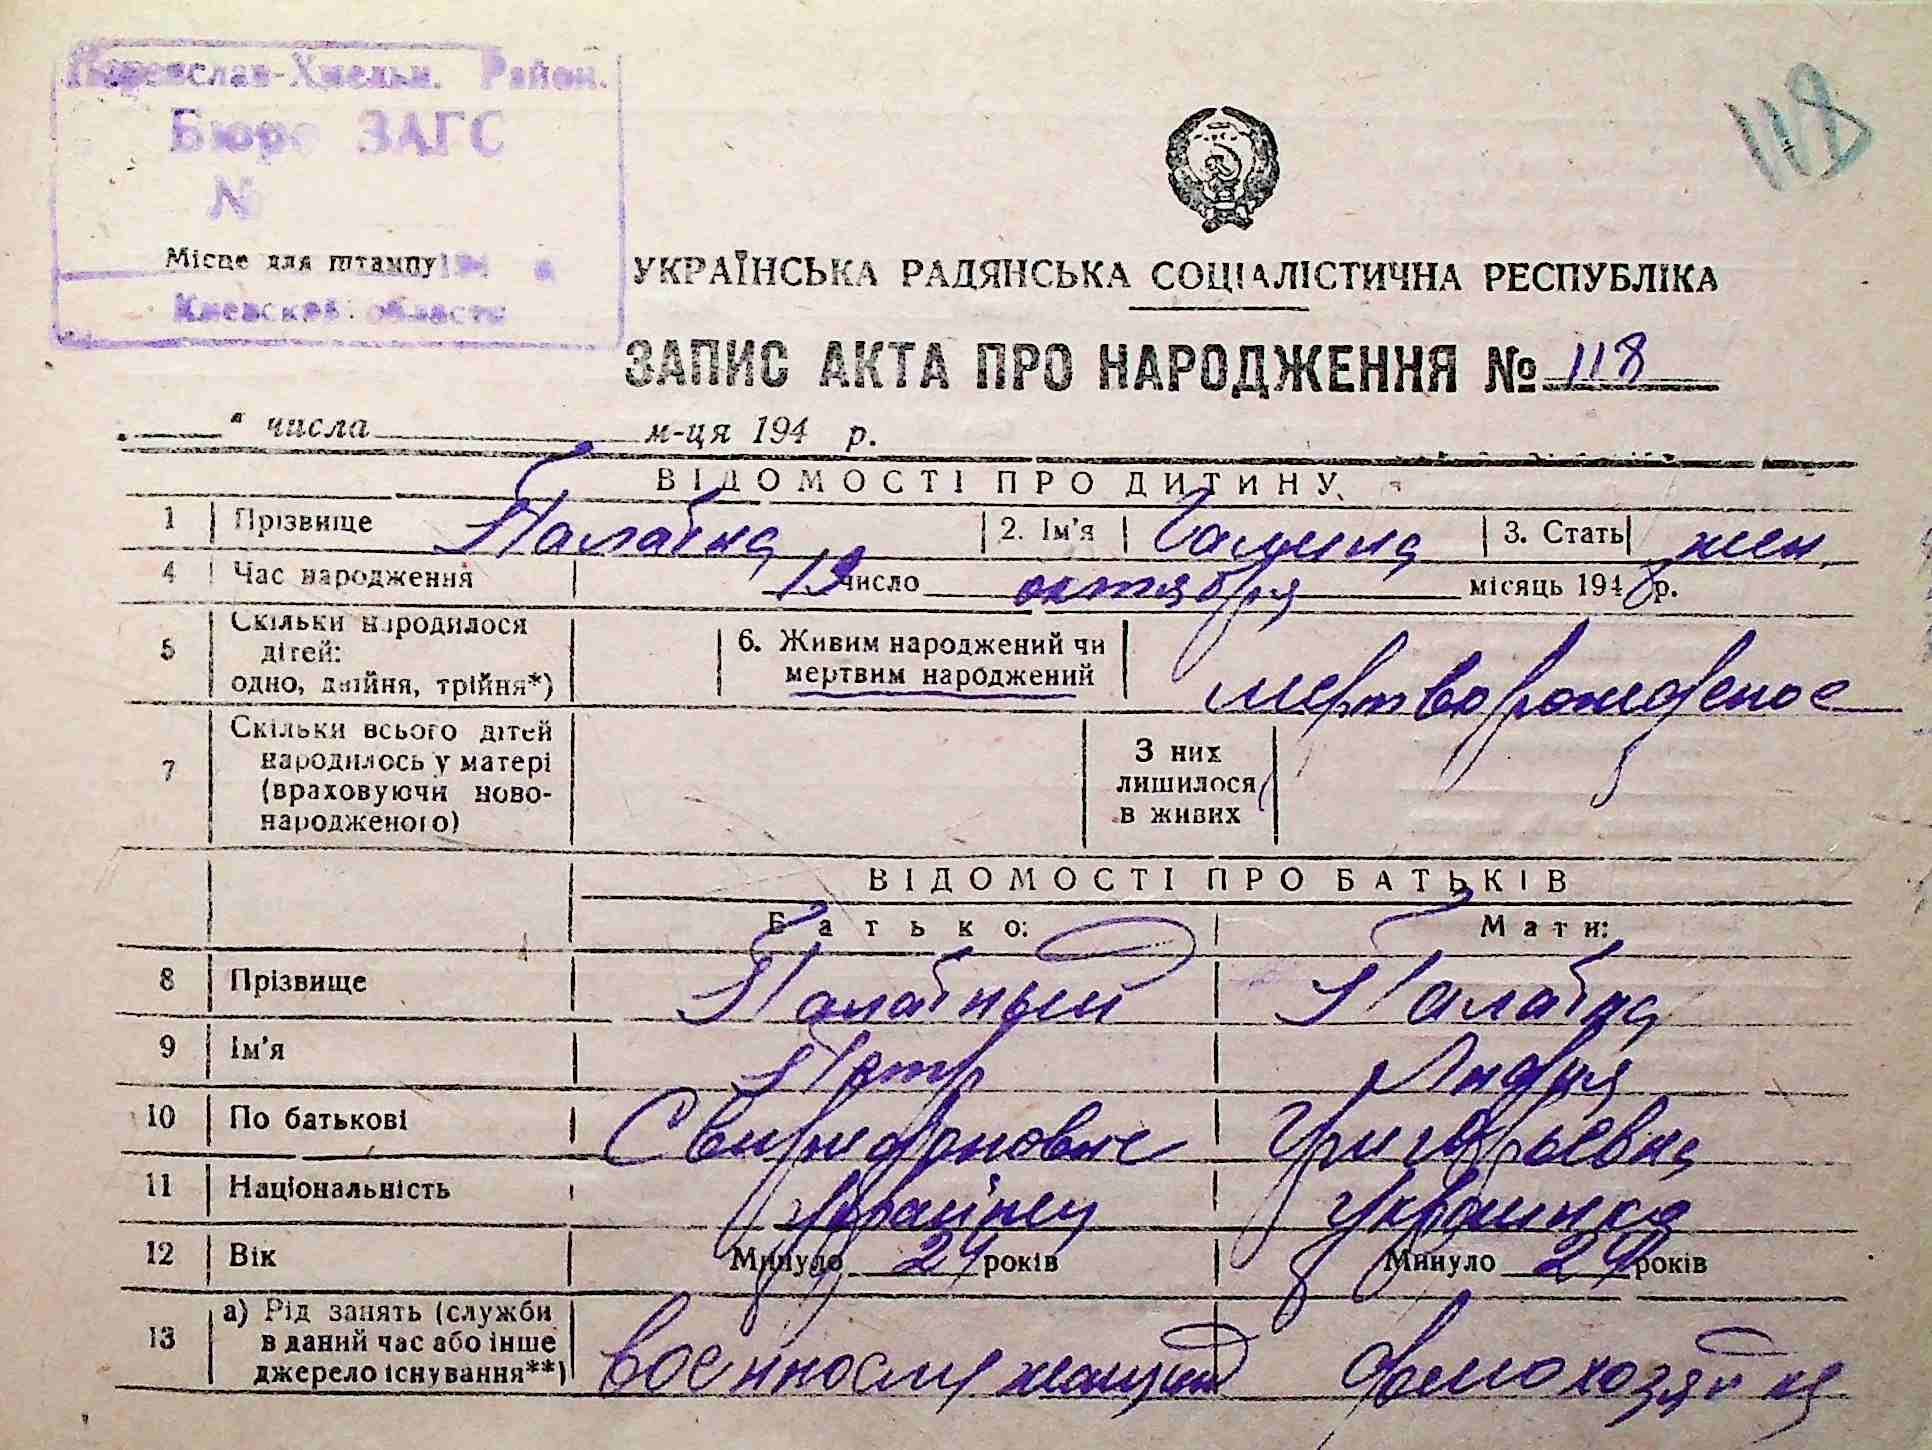 Переяслав-Хмельн. Район.
Бюро ЗАГС
№
Місце для штампу 194
Киевской области
118
УКРАЇНСЬКА РАДЯНСЬКА СОЦІАЛІСТИЧНА РЕСПУБЛІКА
ЗАПИС АКТА ПРО НАРОДЖЕННЯ № 118
" числа м-ця 194 р.
ВІДОМОСТІ ПРО ДИТИНУ
1 Прізвище Палатна 2. Ім'я Галина 3. Стать жен.
4 Час народження число октября місяць 1948 р.
5 Скільки народилося дітей: одно, двійня, трійня*) 6. Живим народжений чи мертвим народжений мертворожденое
7 Скільки всього дітей народилось у матері (враховуючи новонародженого) З них лишилося в живих
ВІДОМОСТІ ПРО БАТЬКІВ
Батько: Мати:
8 Прізвище Палатный Палатна
9 Ім'я Петр Лидия
10 По батькові Григорьевна
11 Національність Украинец Украинка
12 Вік Минуло років Минуло років
13 а) Рід занять (служби в даний час або інше джерело існування**) военнослужащий домохозяйка